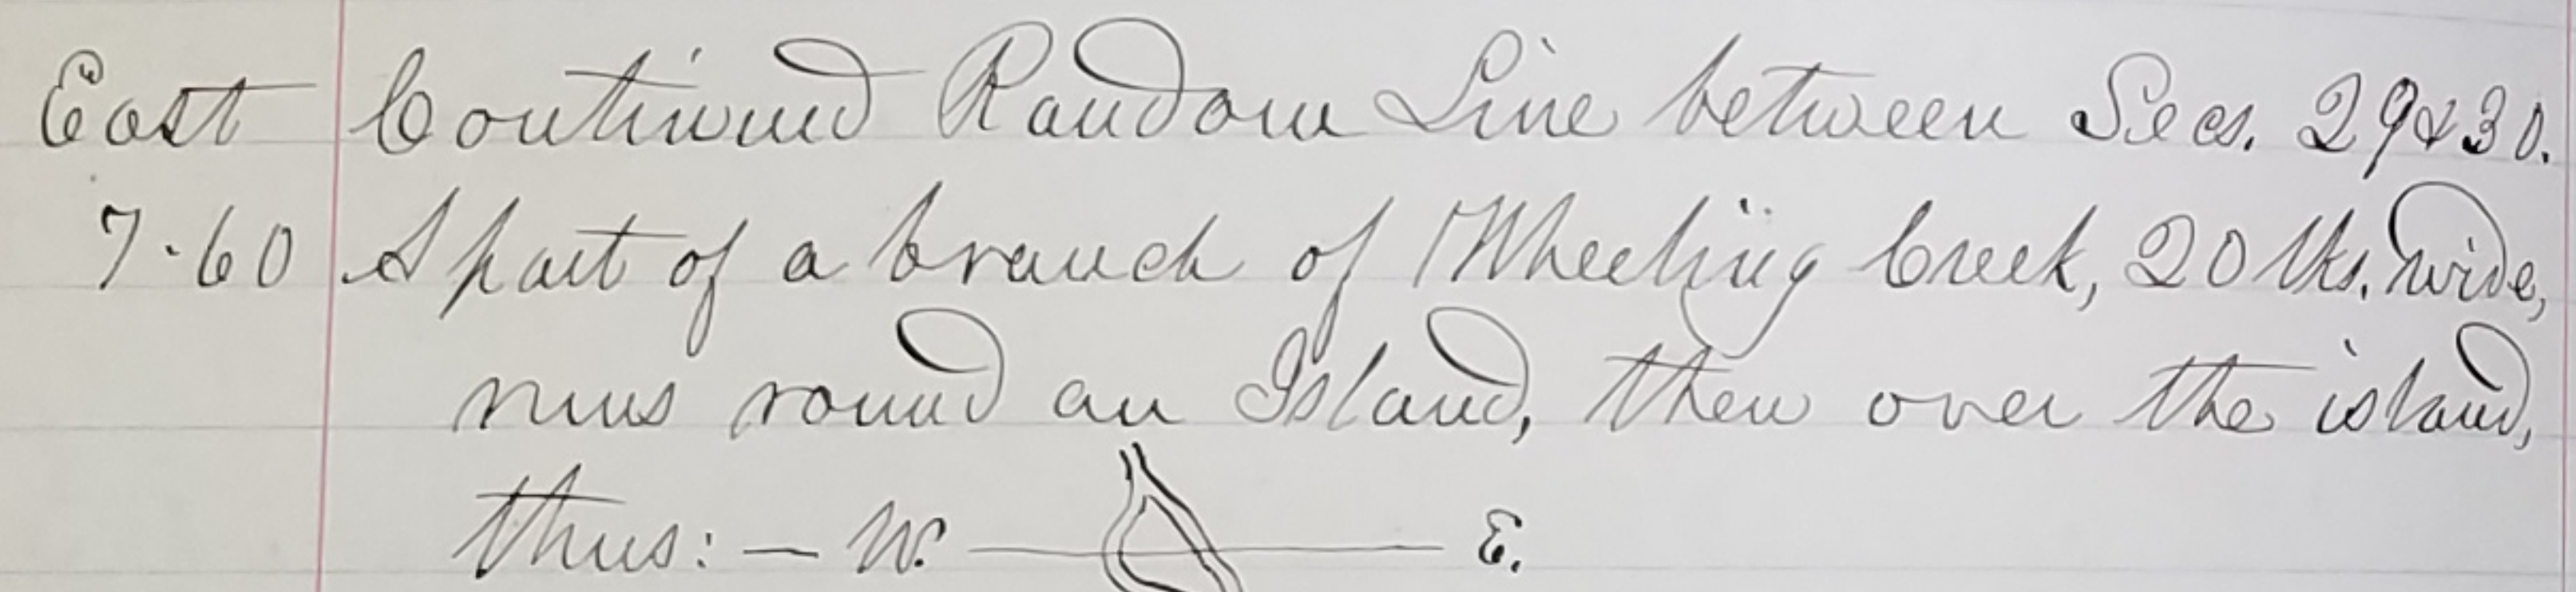 East Continued Random Line between Secs. 29 & 30.
7.60 A part of a branch of Wheeling Creek, 20 lks. wide,
runs round an Island, then over the island,
thus: — W. E.